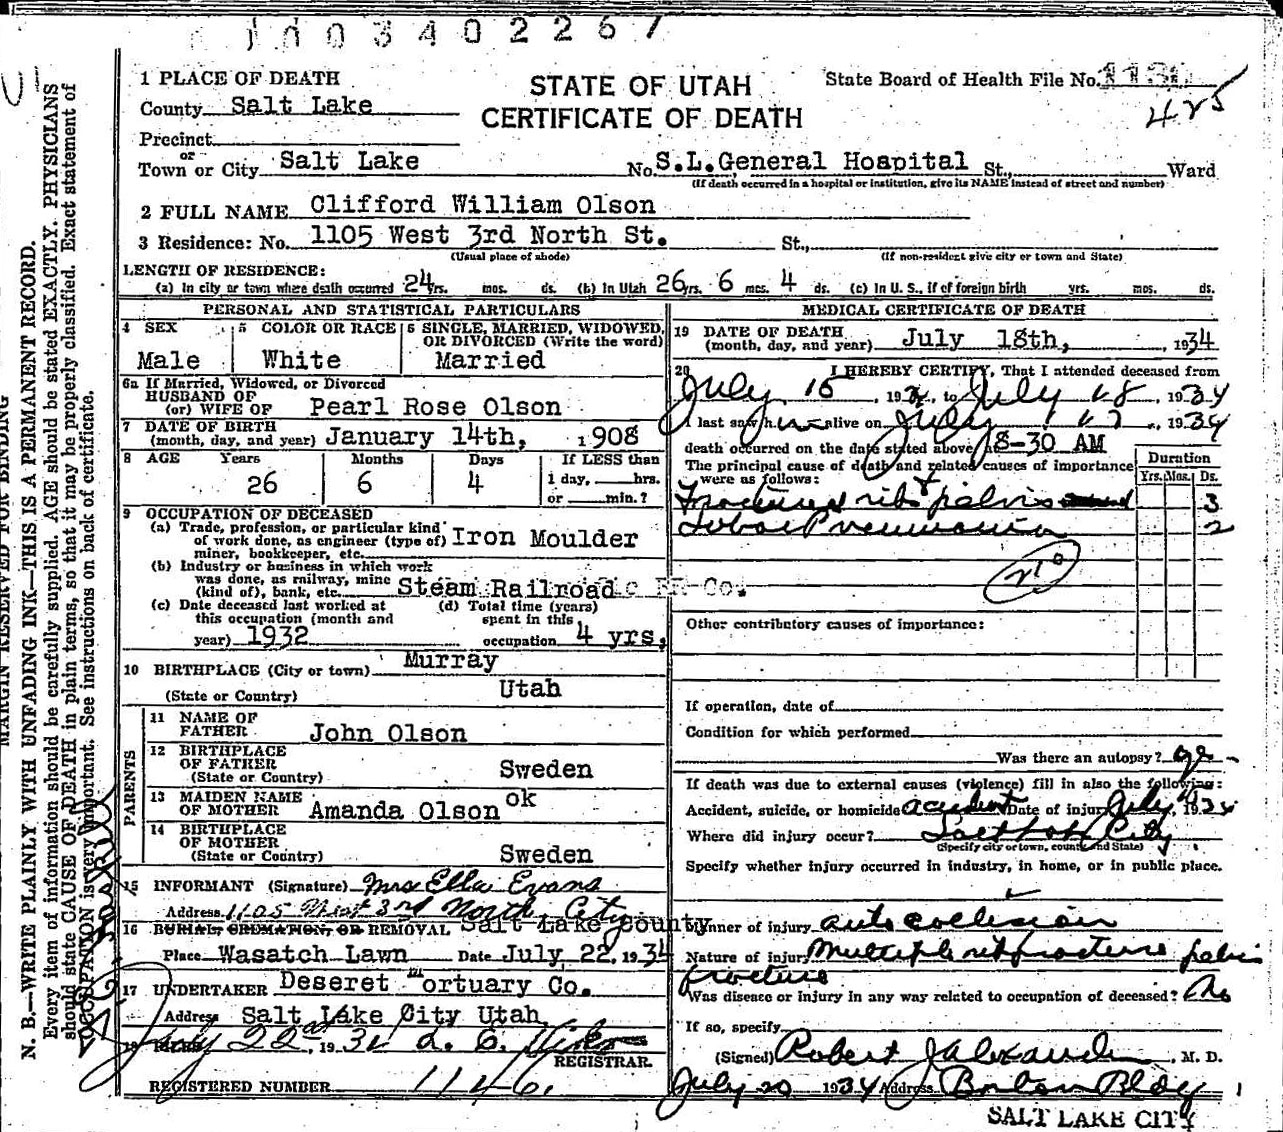 1003402267
1 PLACE OF DEATH
STATE OF UTAH
CERTIFICATE OF DEATH
State Board of Health File No. 1130
425
County Salt Lake
Precinct
or
Town or City Salt Lake No. S.L.General Hospital St., Ward
(If death occurred in a hospital or institution, give its NAME instead of street and number)
2 FULL NAME Clifford William Olson
3 Residence: No. 1105 West 3rd North St. St.,
(Usual place of abode) (If non-resident give city or town and State)
LENGTH OF RESIDENCE:
(a) In city or town where death occurred 24 yrs. mos. ds. (b) In Utah 26 yrs. 6 mos. 4 ds. (c) In U. S., if of foreign birth yrs. mos. ds.
PERSONAL AND STATISTICAL PARTICULARS
4 SEX
Male
5 COLOR OR RACE
White
6 SINGLE, MARRIED, WIDOWED,
OR DIVORCED (Write the word)
Married
6a If Married, Widowed, or Divorced
HUSBAND OF
(or) WIFE OF Pearl Rose Olson
7 DATE OF BIRTH
(month, day, and year) January 14th, 1908
8 AGE Years Months Days If LESS than
26 6 4 1 day, hrs.
or min.?
9 OCCUPATION OF DECEASED
(a) Trade, profession, or particular kind
of work done, as engineer (type of) Iron Moulder
miner, bookkeeper, etc.
(b) Industry or business in which work
was done, as railway, mine
(kind of), bank, etc. Steam Railroad c RR Co.
(c) Date deceased last worked at
this occupation (month and
year) 1932
(d) Total time (years)
spent in this
occupation 4 yrs.
10 BIRTHPLACE (City or town) Murray
(State or Country) Utah
PARENTS
11 NAME OF
FATHER John Olson
12 BIRTHPLACE
OF FATHER
(State or Country) Sweden
13 MAIDEN NAME
OF MOTHER Amanda Olson ok
14 BIRTHPLACE
OF MOTHER
(State or Country) Sweden
15 INFORMANT (Signature) Mrs Ella Evans
Address 1105 West 3rd North City
16 BURIAL, CREMATION, OR REMOVAL Salt Lake County
Place Wasatch Lawn Date July 22, 1934
17 UNDERTAKER Deseret Mortuary Co.
Address Salt Lake City Utah
18 FILED July 22, 1934
REGISTRAR.
REGISTERED NUMBER 1146
MEDICAL CERTIFICATE OF DEATH
19 DATE OF DEATH
(month, day, and year) July 18th, 1934
20 I HEREBY CERTIFY, That I attended deceased from
July 15, 1934, to July 18, 1934
I last saw him alive on July 17, 1934
death occurred on the date stated above, 8-30 AM
The principal cause of death and related causes of importance
were as follows:
Duration
Yrs. Mos. Ds.
Fractured ribs + pelvis 3
Lobar Pneumonia 2
210
Other contributory causes of importance:
If operation, date of
Condition for which performed
Was there an autopsy?
If death was due to external causes (violence) fill in also the following:
Accident, suicide, or homicide accident Date of injury July, 1934
Where did injury occur? Salt Lake City
(Specify city or town, county and State)
Specify whether injury occurred in industry, in home, or in public place.
Manner of injury auto collision
Nature of injury Multiple rib fracture pelvis
fracture
Was disease or injury in any way related to occupation of deceased? No
If so, specify
(Signed) Robert J Alexander, M. D.
July 20 1934 Address Boston Bldg
SALT LAKE CITY
MARGIN RESERVED FOR BINDING
N. B.—WRITE PLAINLY WITH UNFADING INK—THIS IS A PERMANENT RECORD.
Every item of information should be carefully supplied. AGE should be stated EXACTLY. PHYSICIANS
should state CAUSE OF DEATH in plain terms, so that it may be properly classified. Exact statement of
OCCUPATION is very important. See instructions on back of certificate.